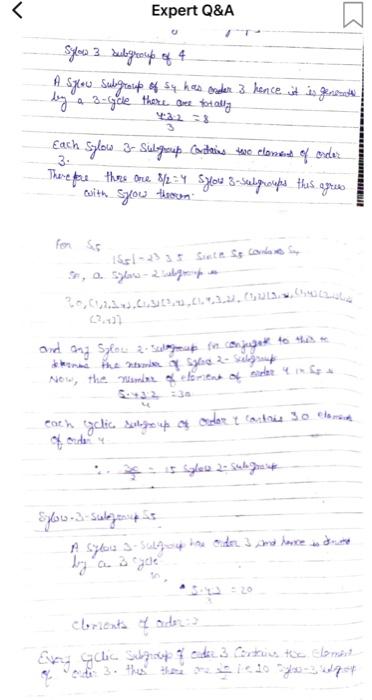 Expert Q&A
Sylow 3 subgroup of 4
A Sylow Subgroup of S4 has order 3 hence it is generated
by a 3-cycle there are totally
4.3.2 = 8
3
Each Sylow 3-Subgroup Contains two elements of order
3.
Therefore there are 8/2=4 Sylow 3-subgroups this agrees
with Sylow theorem.
For S5
|S5| = 2³ 3 5 Since S5 contains S4
so, a Sylow-2 subgroup
and any Sylow 2-subgroup is conjugate to this to
determine the number of Sylow 2-subgroup
Now, the number of element of order 4 in S5 is
5.4.3.2 = 30
4
each cyclic subgroup of order 4 contains 30 element
of order 4
∴ 30/2 = 15 Sylow 2-subgroups
Sylow-3-Subgroup S5
A Sylow 3-Subgroup has order 3 and hence is
by a 3 cycle
so,
5.4.3 = 20
3
elements of order 3
Every cyclic Subgroup of order 3 Contains two element
of order 3. thus there are i.e 10 Sylow-3